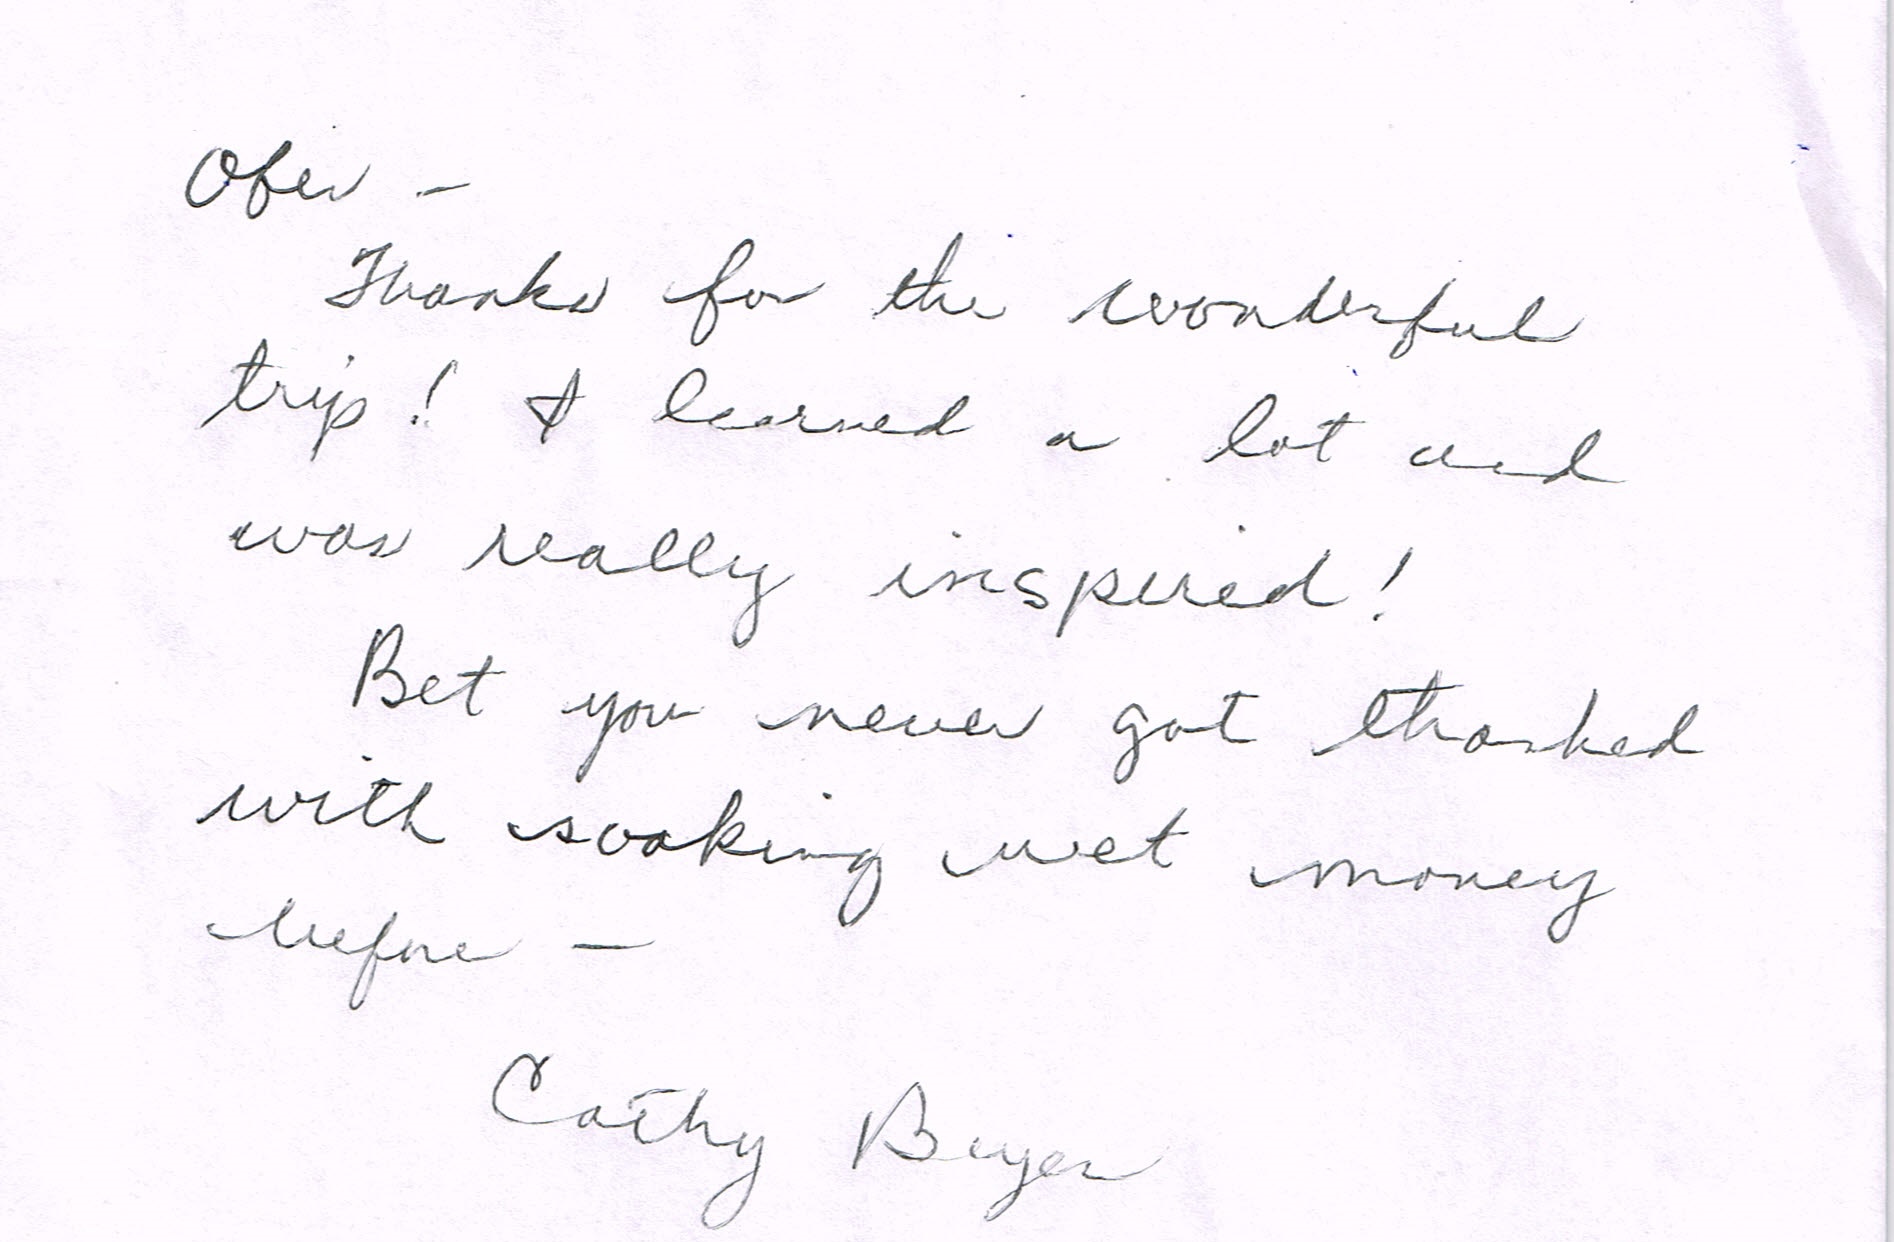 Ofer -
Thanks for the wonderful
trip! I learned a lot and
was really inspired!
Bet you never got thanked
with soaking wet money
before -
Cathy Beyer